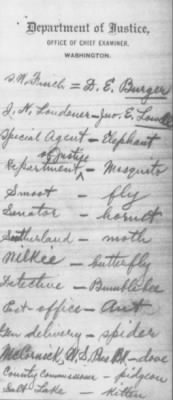 Department of Justice,
OFFICE OF CHIEF EXAMINER,
WASHINGTON.
S.W. Finch = D. E. Burger
J. N. Loudener - Jno. E. Lowell
Special Agent - Elephant
Department of Justice - Mosquito
Smoot - fly
Senator - hornet
Sutherland - moth
Wilkee - butterfly
Detective - Bumblebee
Post office - Ant
Gen delivery - spider
McCornick, U.S. - dove
County Commissioner - pidgeon
Salt Lake - kitten